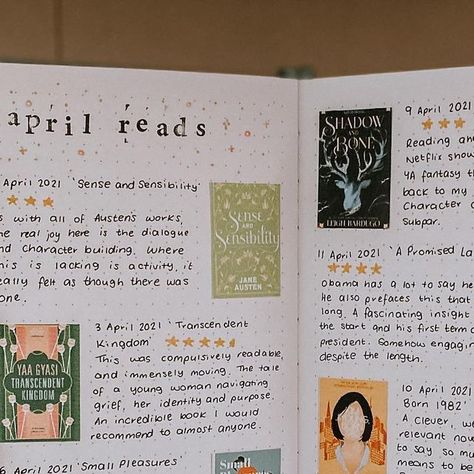 april reads
April 2021 'Sense and Sensibility'
with all of Austen's works,
real joy here is the dialogue
and character building. Where
this is lacking is activity, it
really felt as though there was
SENSE
AND
SENSIBILITY
JANE
AUSTEN
3 April 2021 'Transcendent
Kingdom'
This was compulsively readable,
and immensely moving. The tale
of a young woman navigating
grief, her identity and purpose.
An incredible book I would
recommend to almost anyone.
YAA GYASI
TRANSCENDENT
KINGDOM
April 2021 'Small Pleasures'
Small
SHADOW
AND
BONE
LEIGH BARDUGO
9 April 2021
Reading
Netflix show
YA fantasy
back to my
Character
Subpar.
11 April 2021 'A Promised
Obama has a lot to say
He also prefaces this that
long. A fascinating insight
the start and his first term
president. Somehow
despite the length.
10 April 2021
Born 1982'
A clever,
relevant
to say so
means to